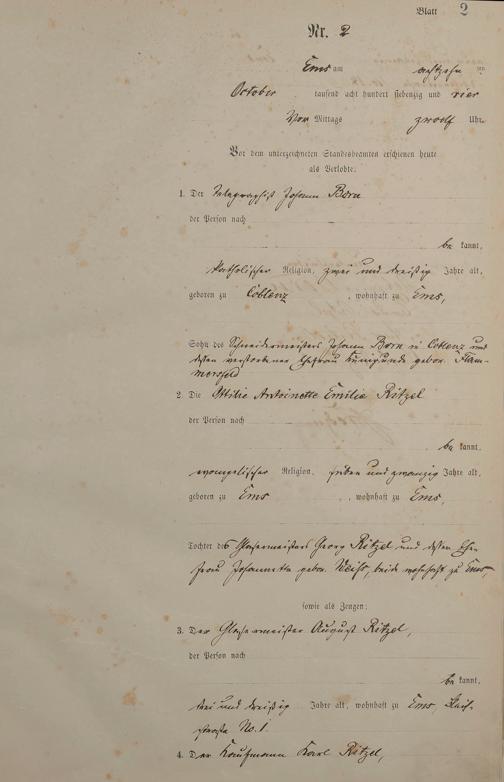 Blatt 2
Nr. 2
Ems am achtzehn ten
October tausend acht hundert siebenzig und vier
Vor Mittags zwölf Uhr.
Vor dem unterzeichneten Standesbeamten erschienen heute
als Verlobte:
1. Der Telegraphist Johann Born
der Person nach
be kannt,
katholischer Religion, zwei und dreißig Jahre alt,
geboren zu Coblenz, wohnhaft zu Ems,
Sohn des Schneidermeisters Johann Born in Coblenz und
dessen verstorbener Ehefrau Kunigunde gebor. Flam-
mersfeld
2. Die Ottilie Antoinette Emilie Ritzel
der Person nach
be kannt,
evangelischer Religion, sieben und zwanzig Jahre alt,
geboren zu Ems, wohnhaft zu Ems,
Tochter des Glasermeisters Georg Ritzel und dessen Ehe-
frau Johannetta gebor. Weiß, beide wohnhaft zu Ems,
sowie als Zeugen:
3. Der Glasermeister August Ritzel,
der Person nach
be kannt,
drei und dreißig Jahre alt, wohnhaft zu Ems,
straße No. 1.
4. Der Kaufmann Karl Ritzel,